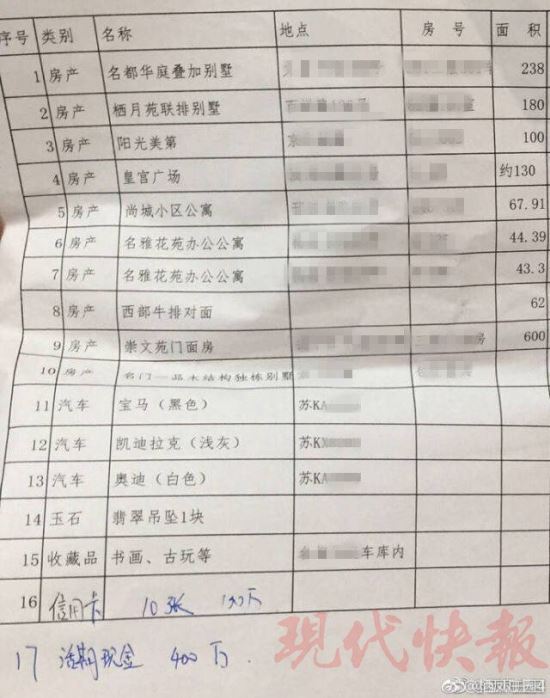 序号 类别 名称 地点 房号 面积
1 房产 名都华庭叠加别墅 238
2 房产 栖月苑联排别墅 180
3 房产 阳光美第
4 房产 皇宫广场 约130
5 房产 尚城小区公寓 67.91
6 房产 名雅花苑办公公寓 44.39
7 房产 名雅花苑办公公寓 43.3
8 房产 西部牛排对面 62
9 房产 崇文苑门面房 房 600
10 房产 名门一品木结构独栋别墅
11 汽车 宝马(黑色) 苏KA
12 汽车 凯迪拉克(浅灰) 苏KX
13 汽车 奥迪(白色) 苏KA
14 玉石 翡翠吊坠1块
15 收藏品 书画、古玩等 车库内
16 信用卡 10张
17 活期现金 400万
现代快報